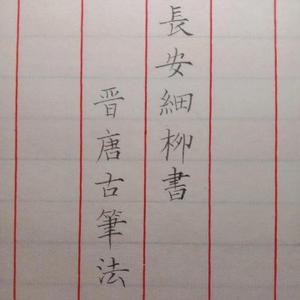 長安細柳書
晋唐古筆法